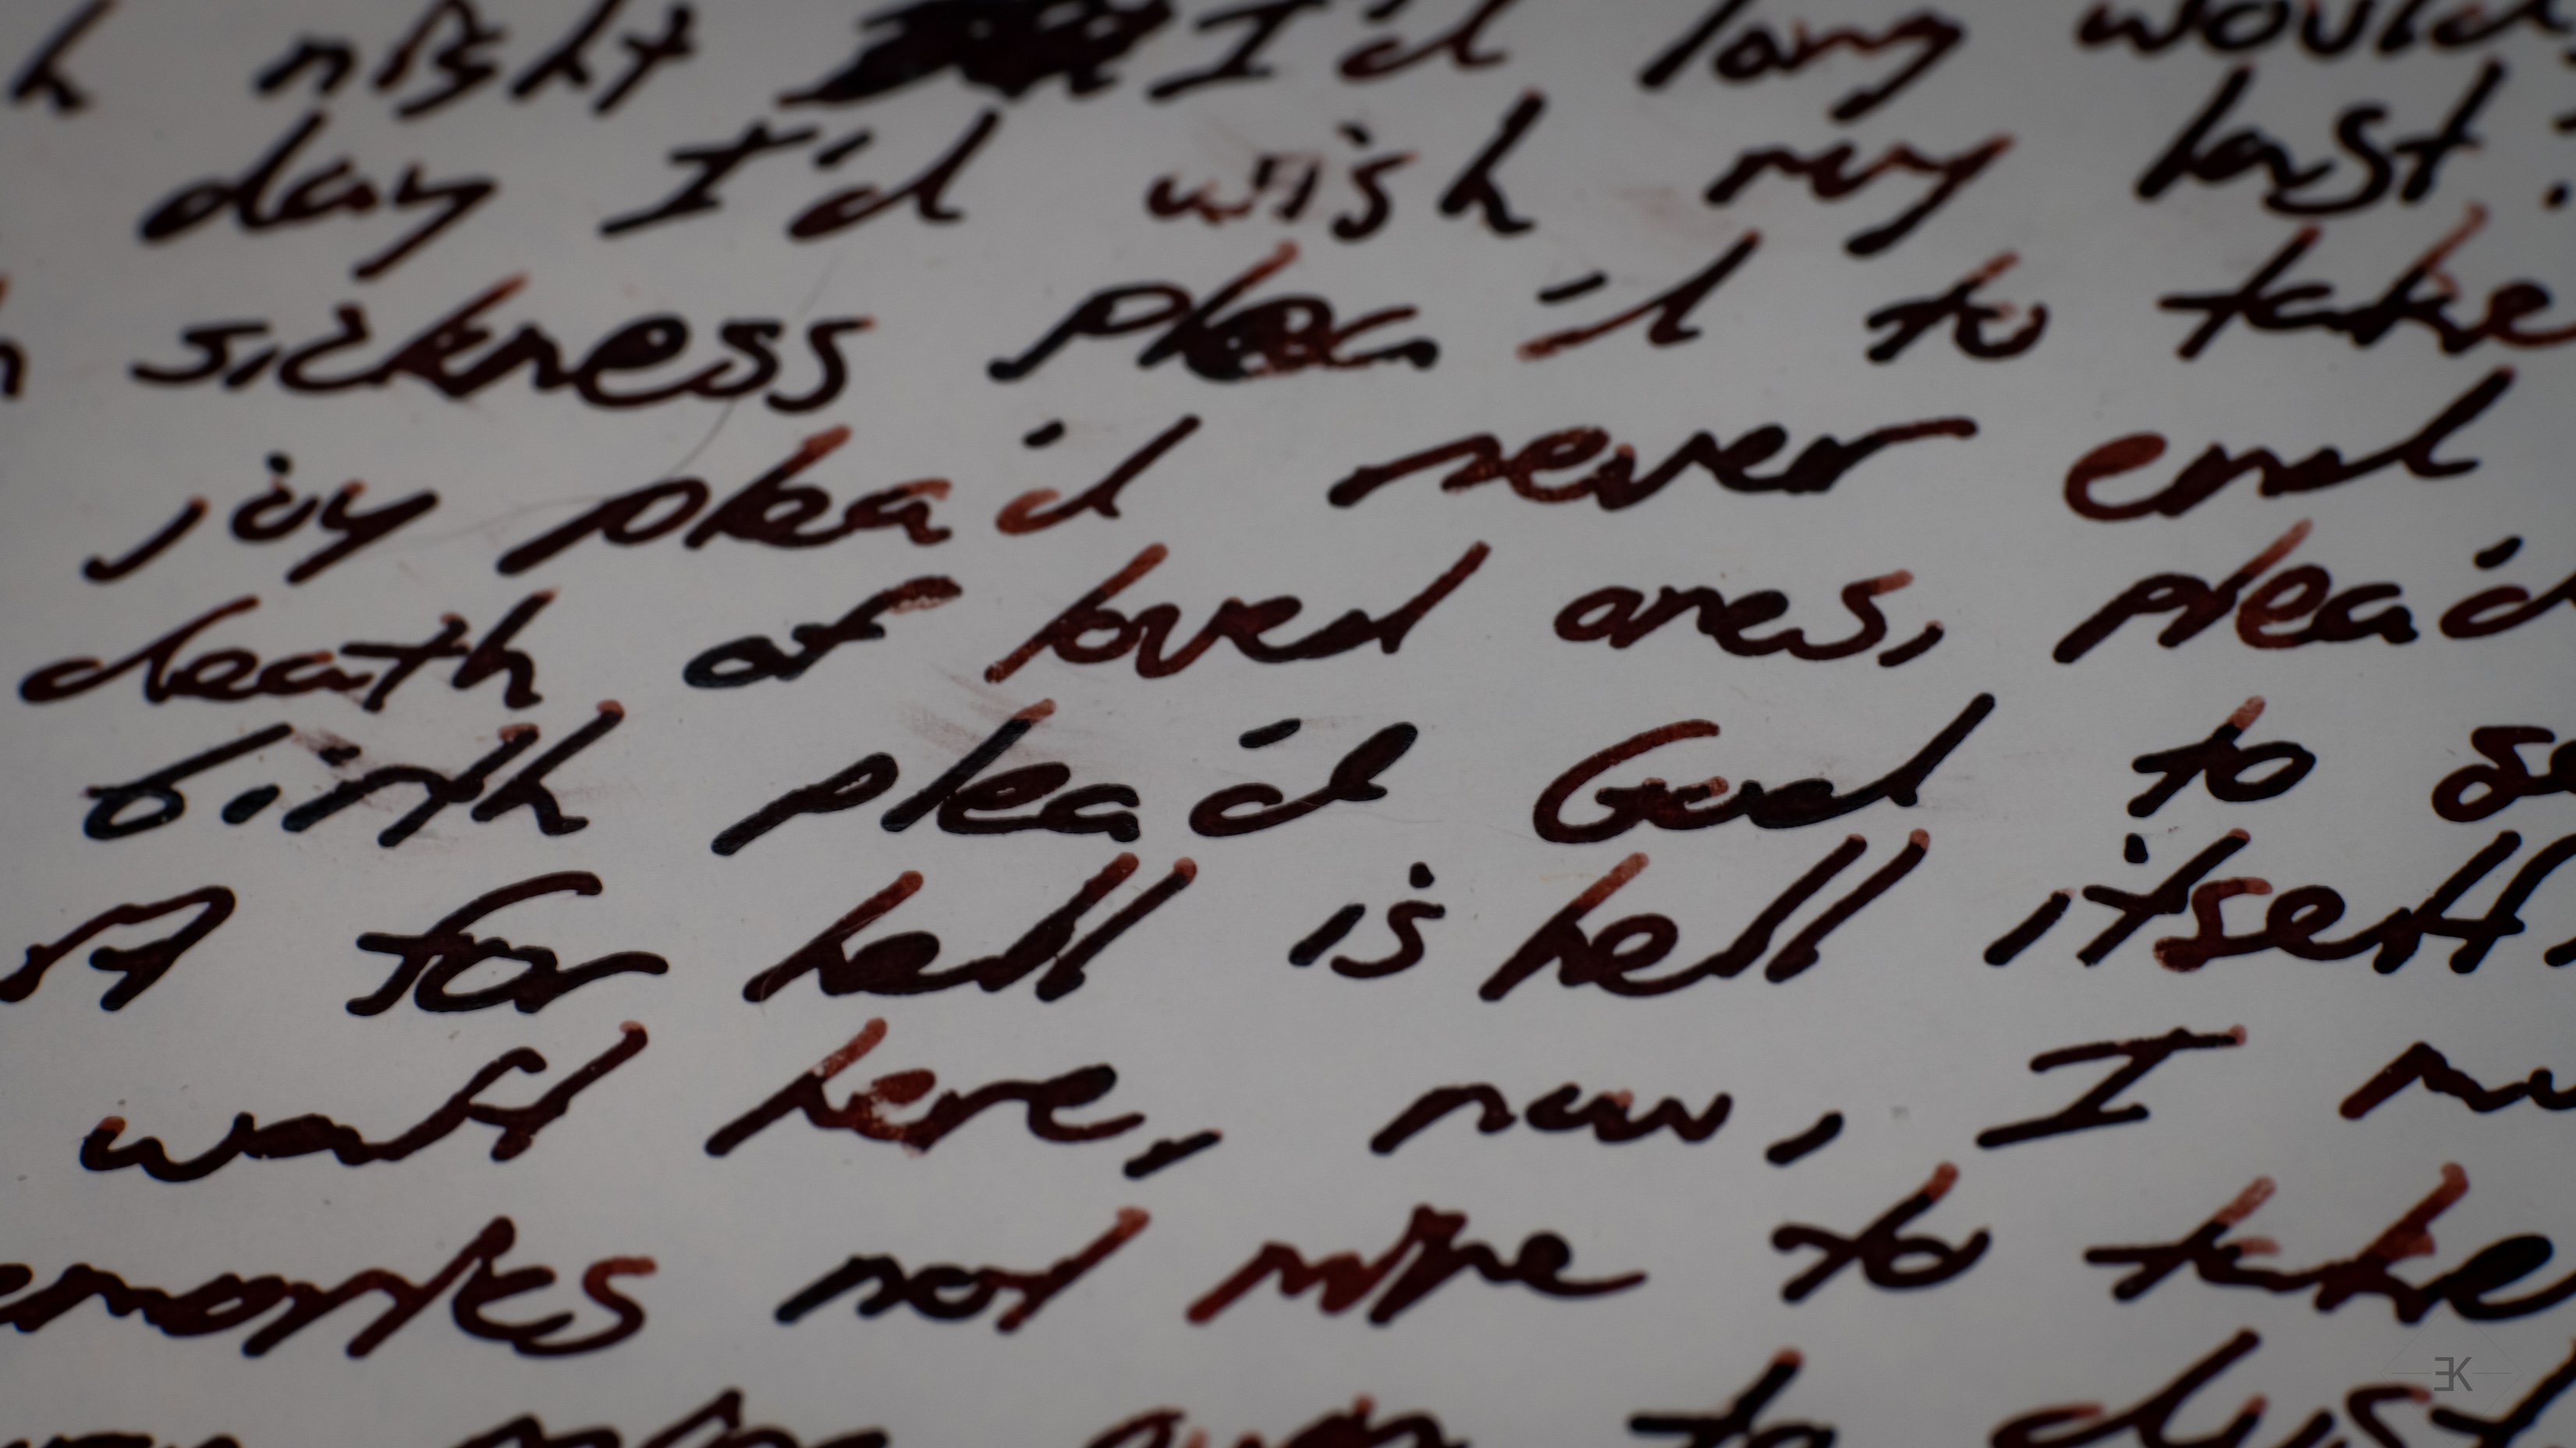 night I'd long would
day I'd wish my last
sickness plea'd to take
joy plea'd never end
death of loved ones, plea'd
birth plea'd God to
for hell is hell itself
here, now, I
nor mine to take
to dust
ƎK